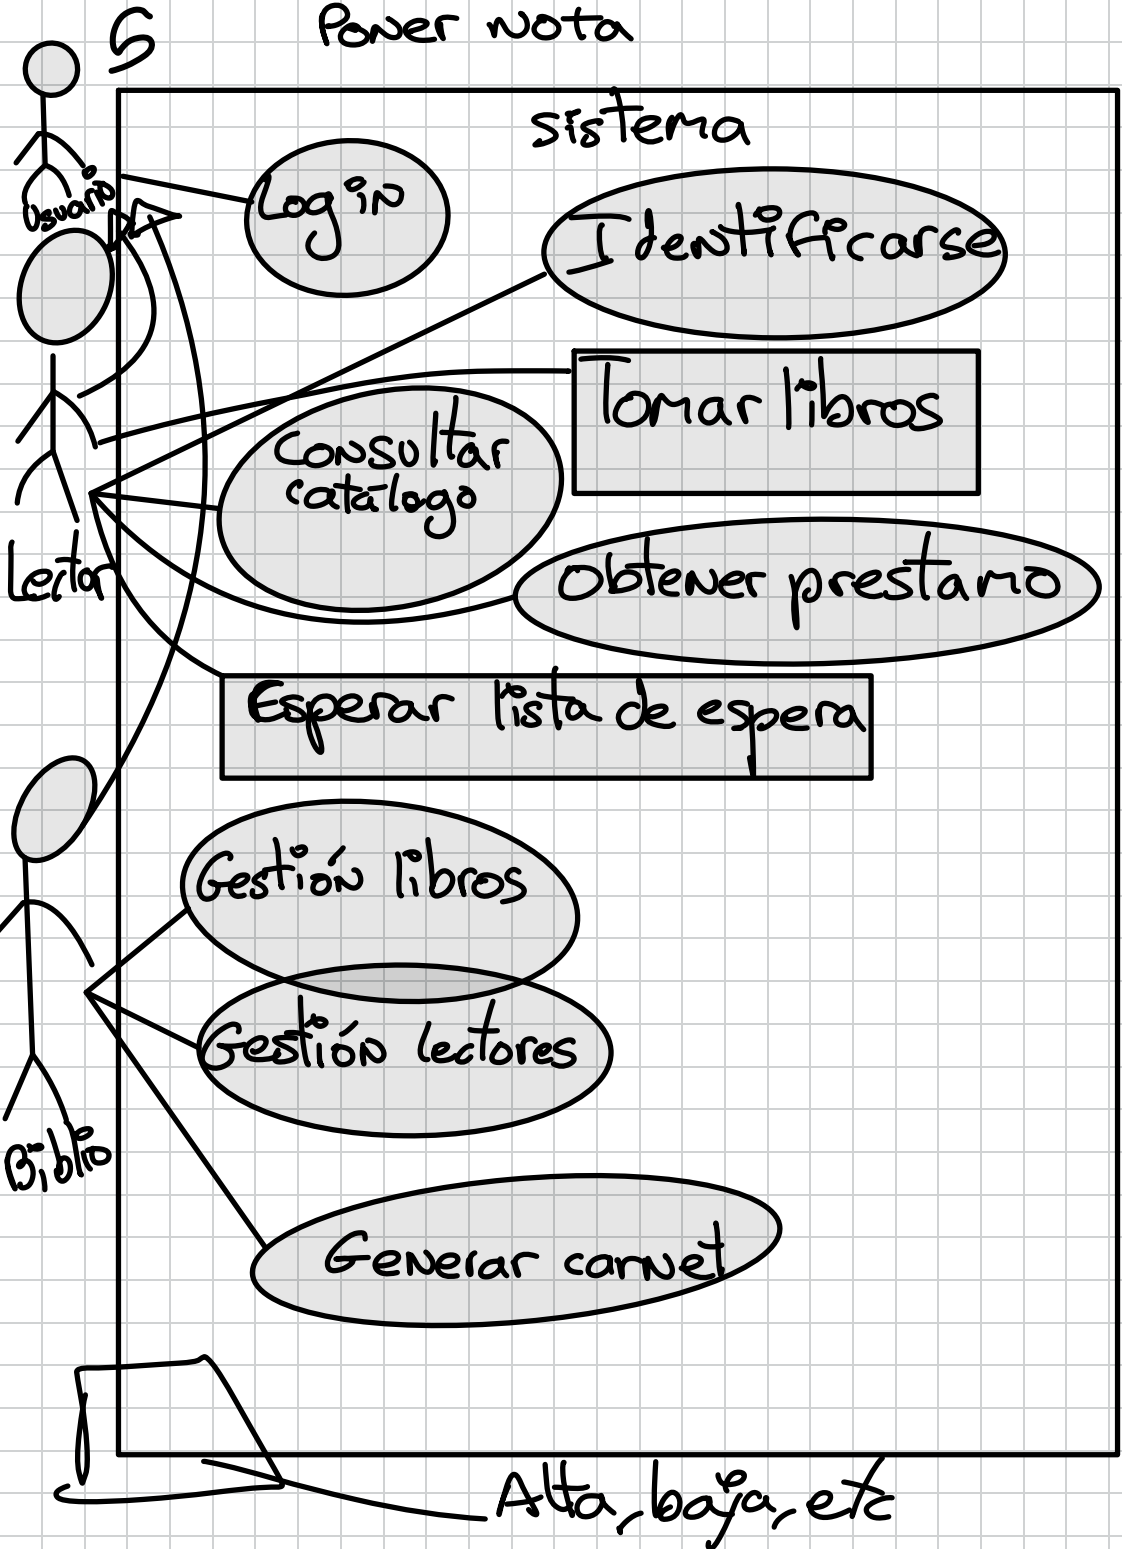 5
Poner nota
sistema
Usuario
Login
Identificarse
Tomar libros
Consultar
catálogo
Lector
Obtener prestamo
Esperar lista de espera
Gestión libros
Gestión lectores
Biblio
Generar carnet
Alta, baja, etc